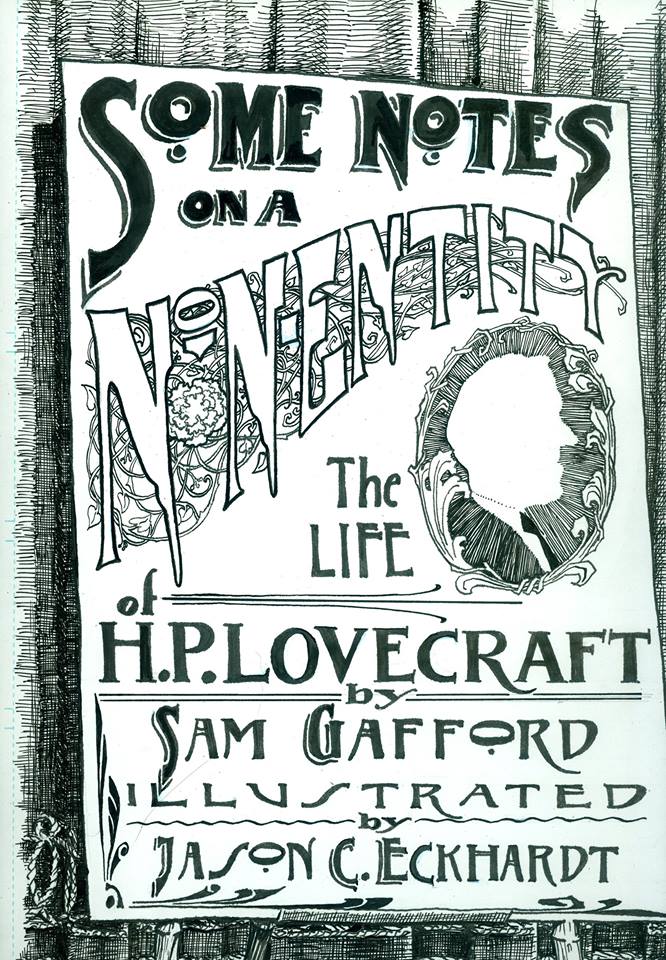 SOME NOTES
ON A
NON-ENTITY
The
LIFE
of
H.P. LOVECRAFT
by
SAM GAFFORD
ILLUSTRATED
by
JASON C. ECKHARDT